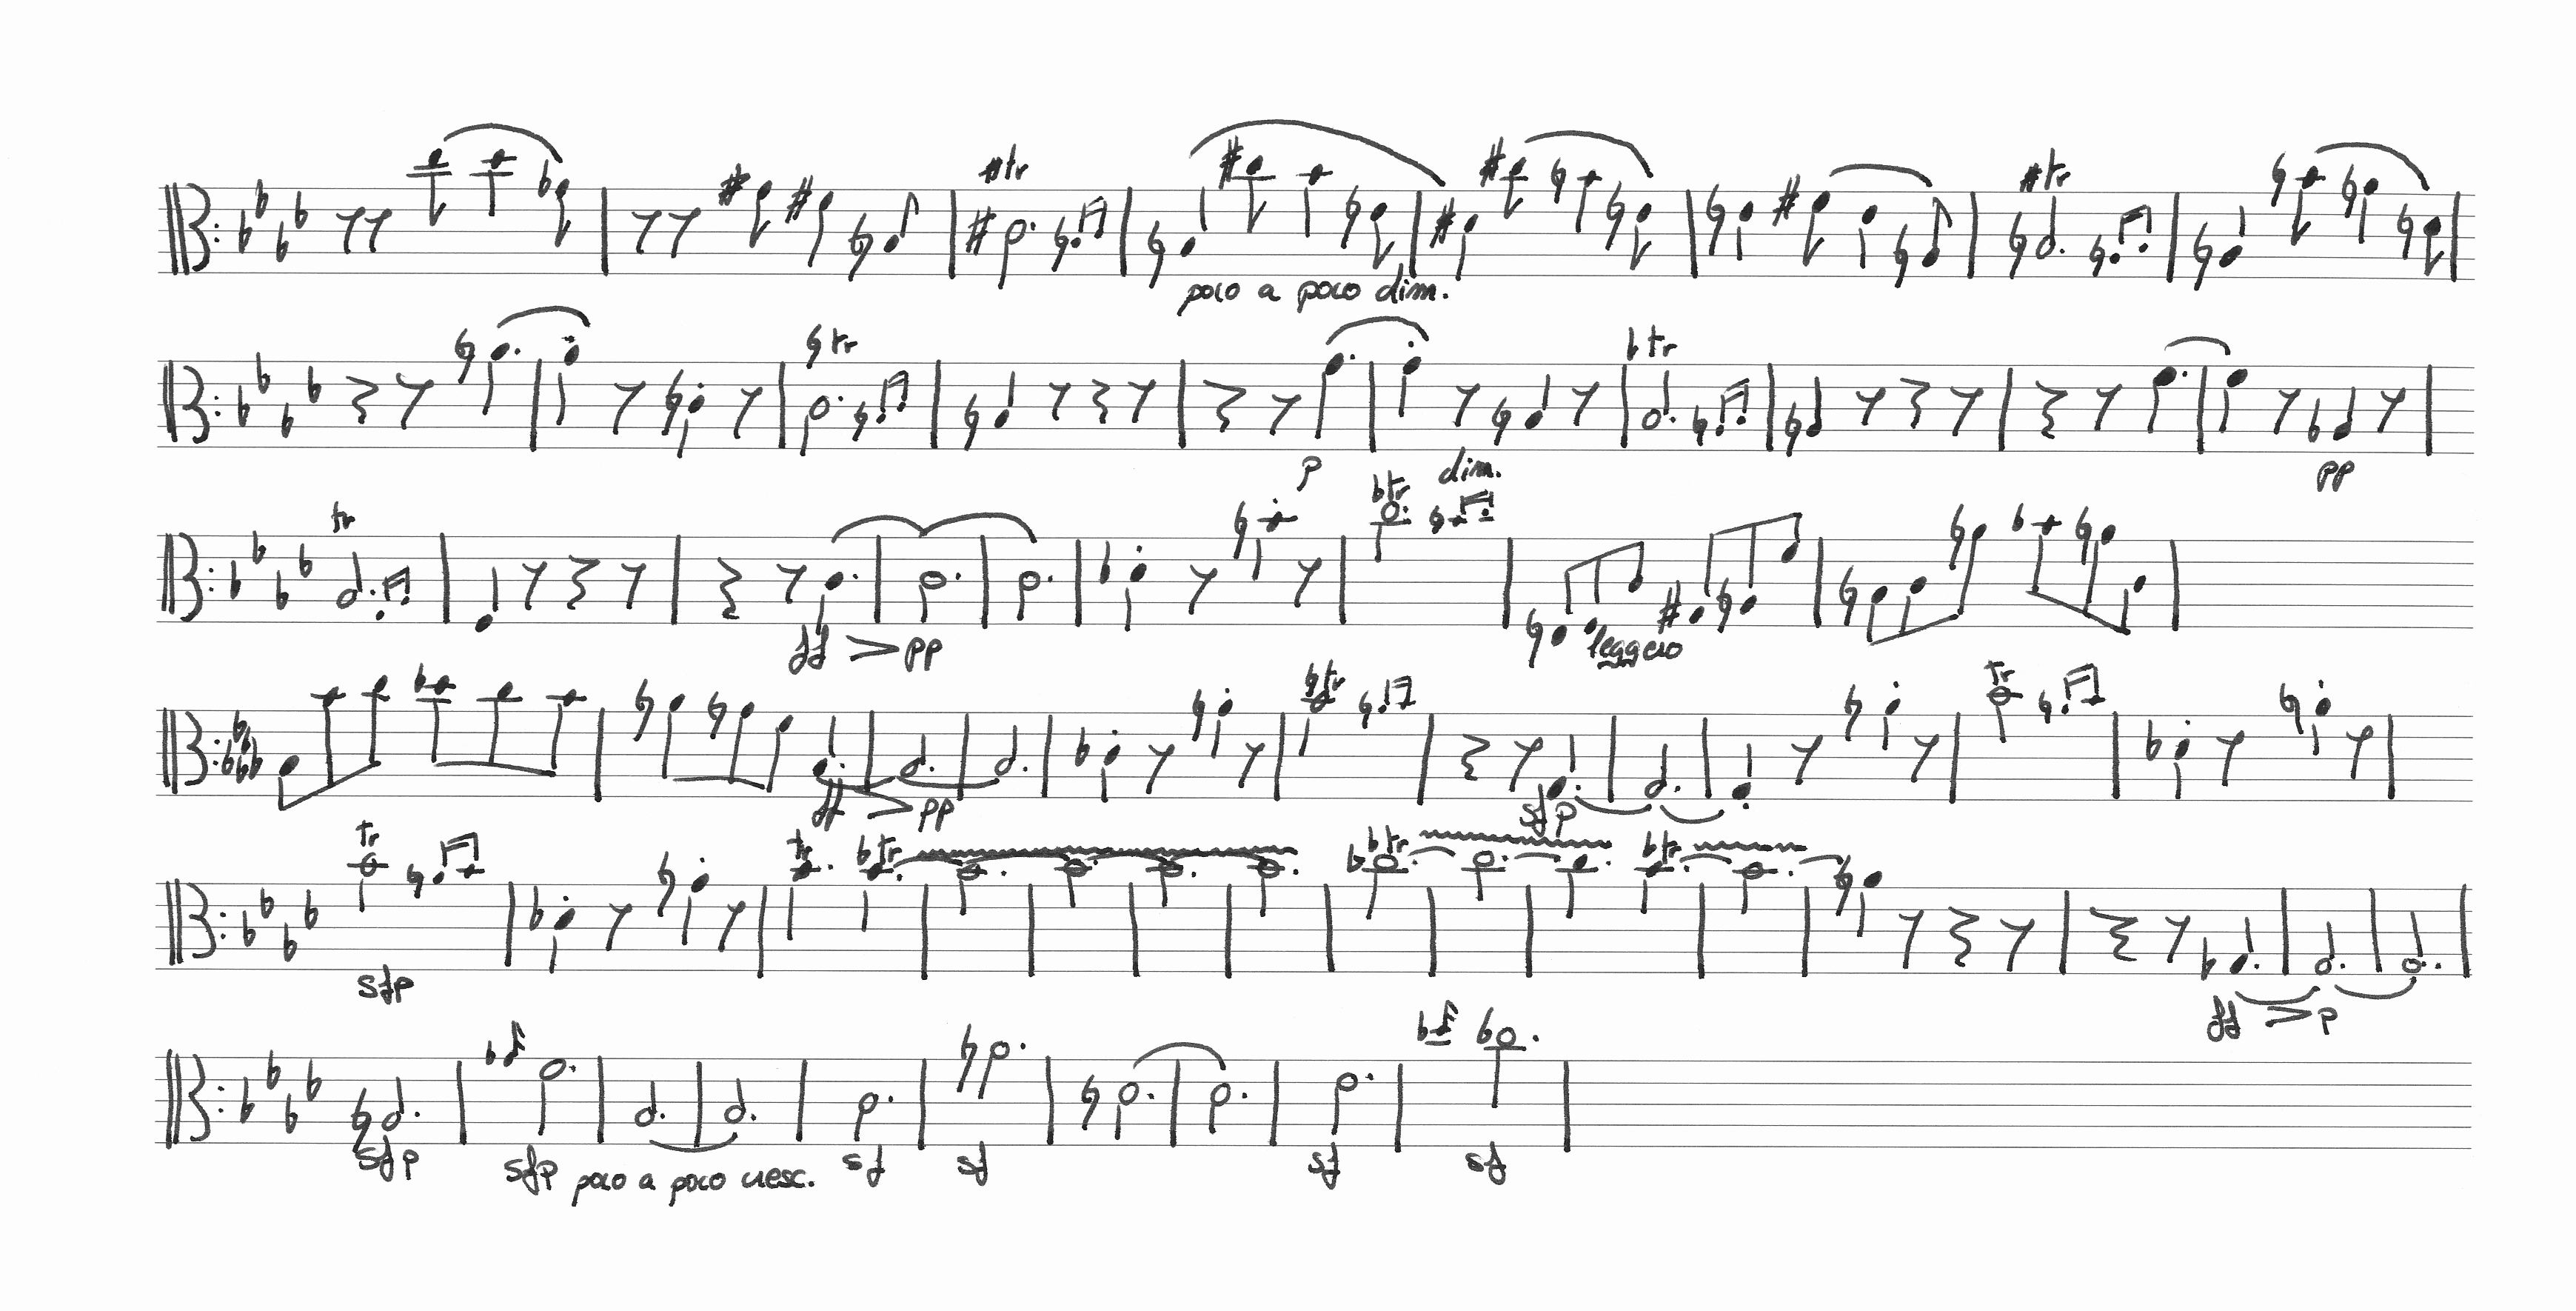 tr
tr
poco a poco dim.
tr
tr
p
dim.
pp
tr
tr
ff
pp
leggero
tr
tr
ff
pp
sfp
tr
tr
tr
tr
tr
sfp
ff
p
sfp
sfp
poco a poco cresc.
sf
sf
sf
sf